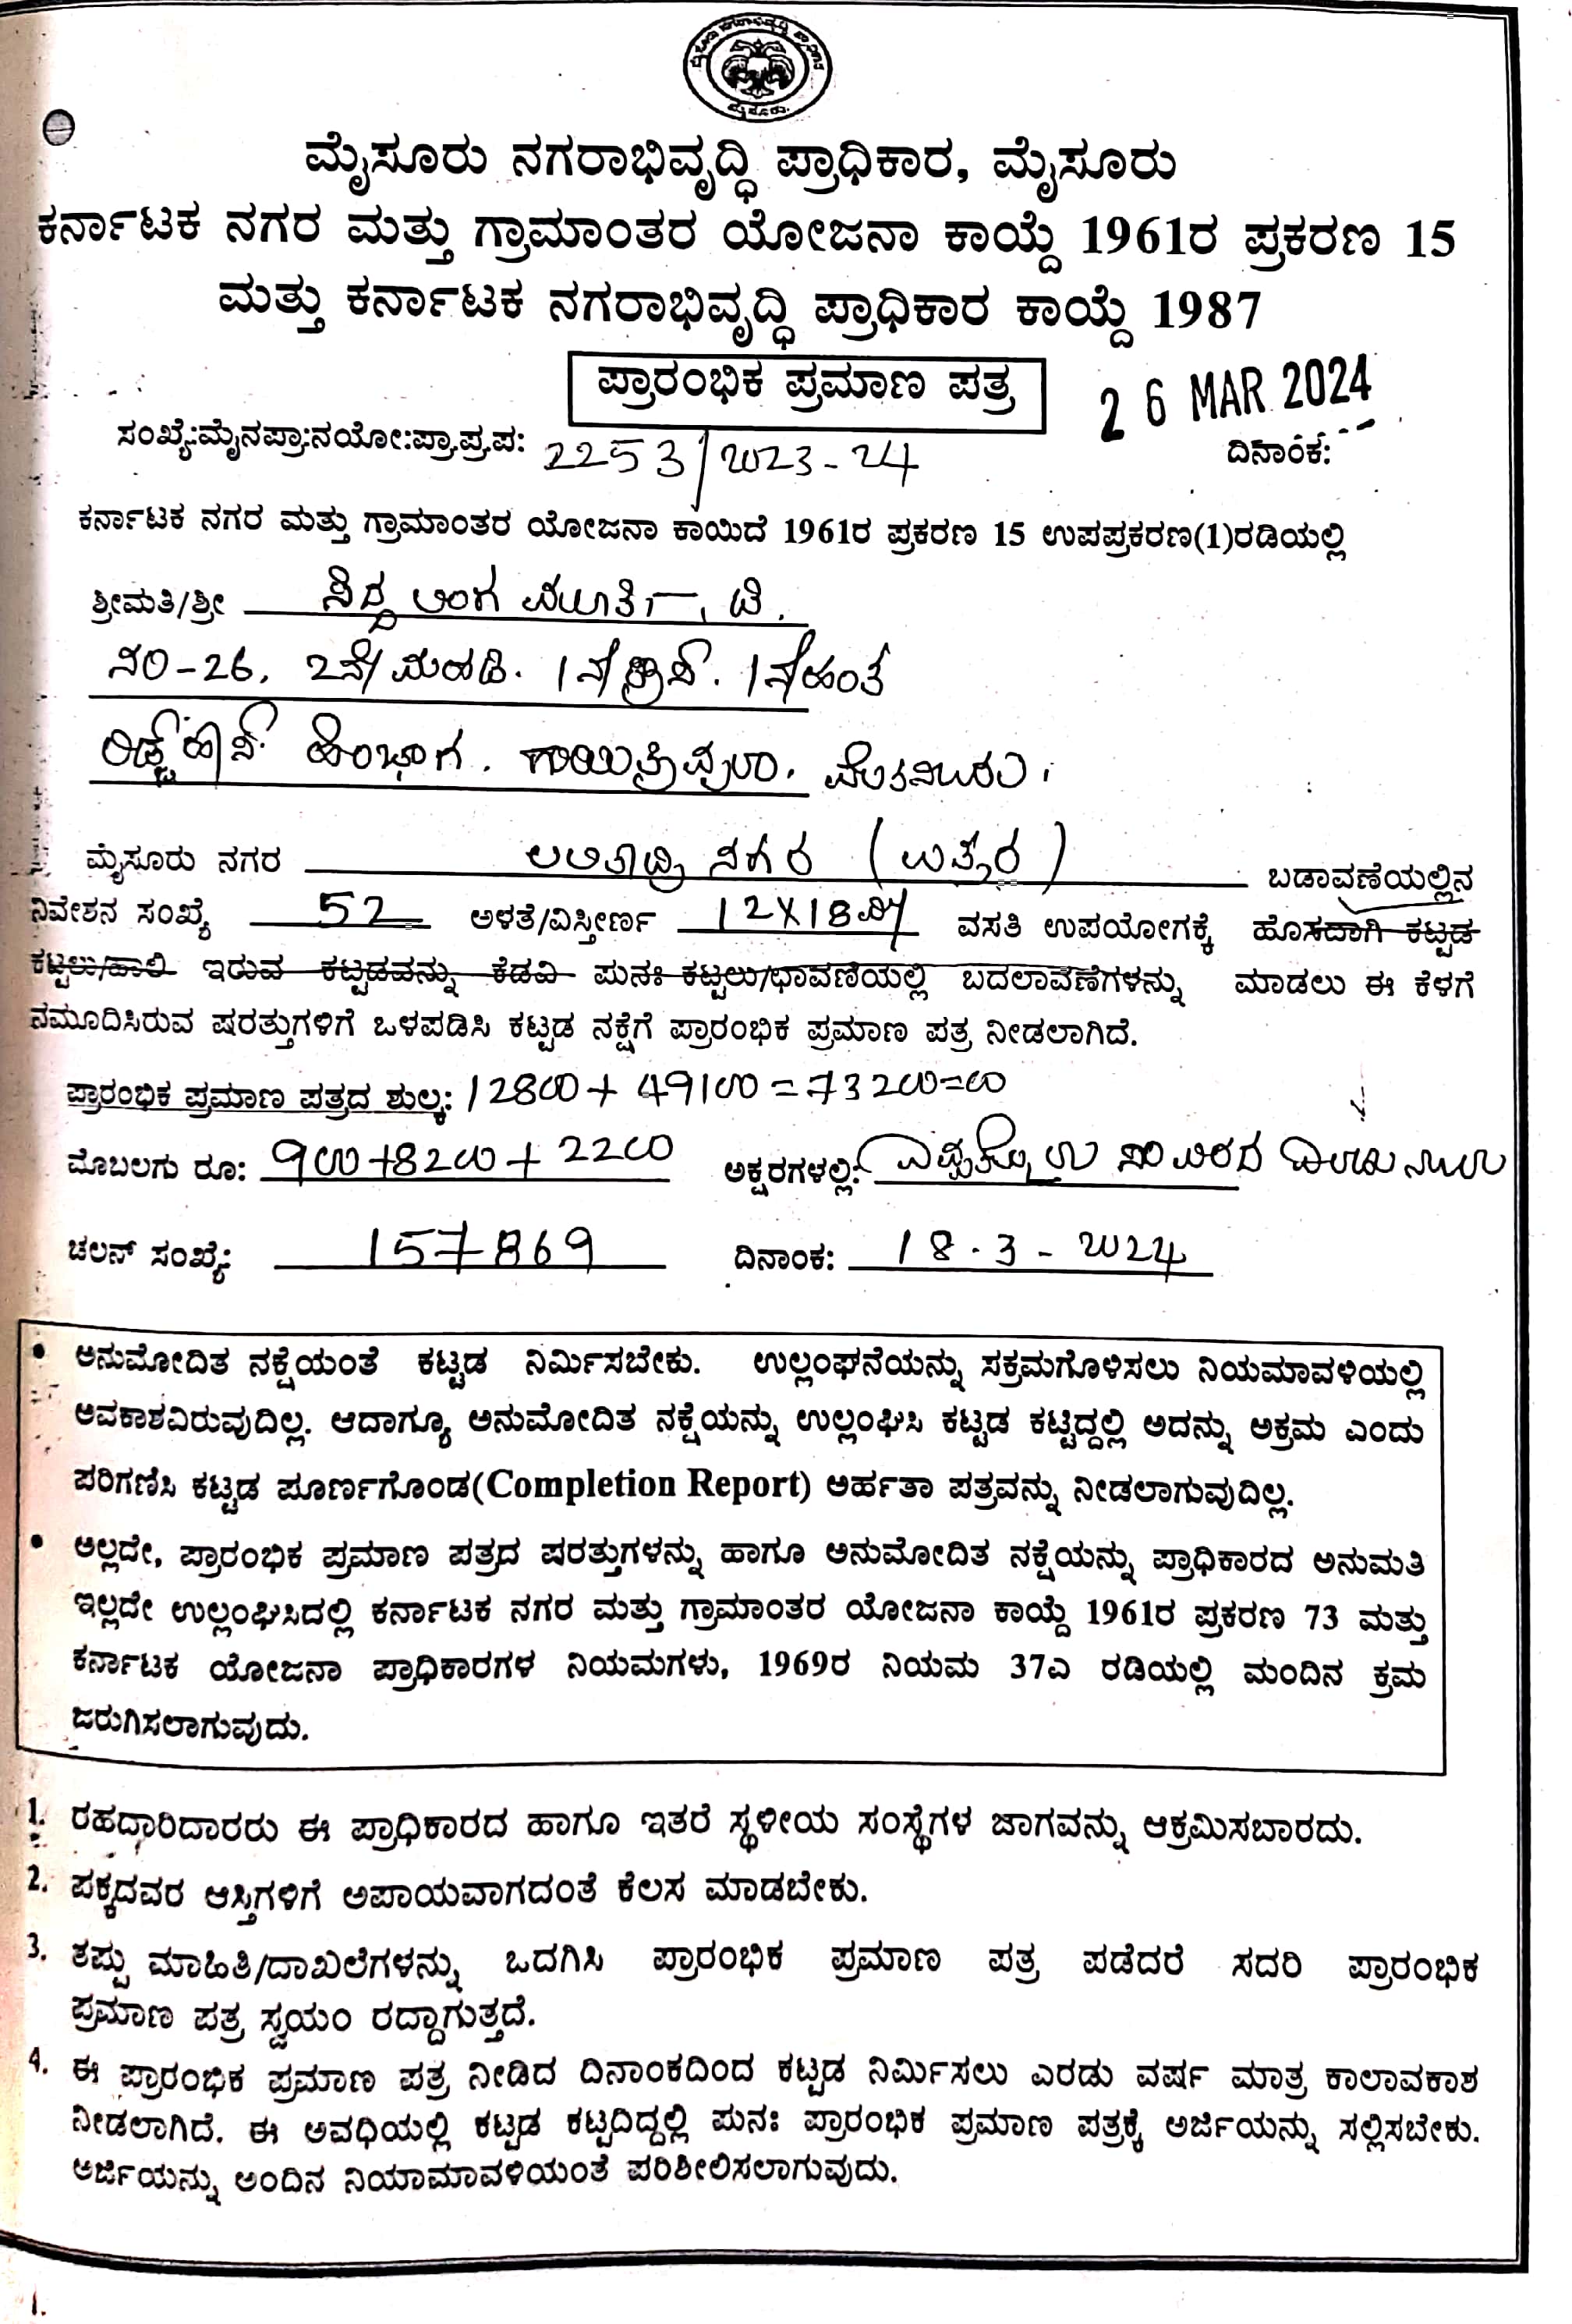 ಮೈಸೂರು ನಗರಾಭಿವೃದ್ಧಿ ಪ್ರಾಧಿಕಾರ, ಮೈಸೂರು
ಕರ್ನಾಟಕ ನಗರ ಮತ್ತು ಗ್ರಾಮಾಂತರ ಯೋಜನಾ ಕಾಯ್ದೆ 1961ರ ಪ್ರಕರಣ 15
ಮತ್ತು ಕರ್ನಾಟಕ ನಗರಾಭಿವೃದ್ಧಿ ಪ್ರಾಧಿಕಾರ ಕಾಯ್ದೆ 1987
ಪ್ರಾರಂಭಿಕ ಪ್ರಮಾಣ ಪತ್ರ 26 MAR 2024
ಸಂಖ್ಯೆ:ಮೈನಪ್ರಾ:ನಯೋ:ಪ್ರಾ.ಪ್ರ.ಪ: 2253/2023-24 ದಿನಾಂಕ:
ಕರ್ನಾಟಕ ನಗರ ಮತ್ತು ಗ್ರಾಮಾಂತರ ಯೋಜನಾ ಕಾಯಿದೆ 1961ರ ಪ್ರಕರಣ 15 ಉಪಪ್ರಕರಣ(1)ರಡಿಯಲ್ಲಿ
ಶ್ರೀಮತಿ/ಶ್ರೀ ಸಿದ್ದಲಿಂಗ ಮೂರ್ತಿ, ಟಿ.
ನಂ-26, 2ನೇ ಮಹಡಿ. 1ನೇ ಕ್ರಾಸ್. 1ನೇ ಹಂತ
ಹಿಂಭಾಗ. ಗಾಯಿತ್ರಿಪುರಂ. ಮೈಸೂರು.
ಮೈಸೂರು ನಗರ ಲಲಿತಾದ್ರಿ ನಗರ (ಉತ್ತರ) ಬಡಾವಣೆಯಲ್ಲಿನ
ನಿವೇಶನ ಸಂಖ್ಯೆ 52 ಅಳತೆ/ವಿಸ್ತೀರ್ಣ 12X18ಮೀ ವಸತಿ ಉಪಯೋಗಕ್ಕೆ ಹೊಸದಾಗಿ ಕಟ್ಟಡ
ಕಟ್ಟಲು/ಹಾಲಿ ಇರುವ ಕಟ್ಟಡವನ್ನು ಕೆಡವಿ ಪುನಃ ಕಟ್ಟಲು/ಛಾವಣಿಯಲ್ಲಿ ಬದಲಾವಣೆಗಳನ್ನು ಮಾಡಲು ಈ ಕೆಳಗೆ
ನಮೂದಿಸಿರುವ ಷರತ್ತುಗಳಿಗೆ ಒಳಪಡಿಸಿ ಕಟ್ಟಡ ನಕ್ಷೆಗೆ ಪ್ರಾರಂಭಿಕ ಪ್ರಮಾಣ ಪತ್ರ ನೀಡಲಾಗಿದೆ.
ಪ್ರಾರಂಭಿಕ ಪ್ರಮಾಣ ಪತ್ರದ ಶುಲ್ಕ: 12800+49100=73200=00
ಮೊಬಲಗು ರೂ: 900+8200+2200 ಅಕ್ಷರಗಳಲ್ಲಿ: ಎಪ್ಪತ್ಮೂರು ಸಾವಿರದ ಎರಡು ನೂರು
ಚಲನ್ ಸಂಖ್ಯೆ: 157869 ದಿನಾಂಕ: 18.3-2024
• ಅನುಮೋದಿತ ನಕ್ಷೆಯಂತೆ ಕಟ್ಟಡ ನಿರ್ಮಿಸಬೇಕು. ಉಲ್ಲಂಘನೆಯನ್ನು ಸಕ್ರಮಗೊಳಿಸಲು ನಿಯಮಾವಳಿಯಲ್ಲಿ
ಅವಕಾಶವಿರುವುದಿಲ್ಲ. ಆದಾಗ್ಯೂ ಅನುಮೋದಿತ ನಕ್ಷೆಯನ್ನು ಉಲ್ಲಂಘಿಸಿ ಕಟ್ಟಡ ಕಟ್ಟಿದ್ದಲ್ಲಿ ಅದನ್ನು ಅಕ್ರಮ ಎಂದು
ಪರಿಗಣಿಸಿ ಕಟ್ಟಡ ಪೂರ್ಣಗೊಂಡ(Completion Report) ಅರ್ಹತಾ ಪತ್ರವನ್ನು ನೀಡಲಾಗುವುದಿಲ್ಲ.
• ಅಲ್ಲದೇ, ಪ್ರಾರಂಭಿಕ ಪ್ರಮಾಣ ಪತ್ರದ ಷರತ್ತುಗಳನ್ನು ಹಾಗೂ ಅನುಮೋದಿತ ನಕ್ಷೆಯನ್ನು ಪ್ರಾಧಿಕಾರದ ಅನುಮತಿ
ಇಲ್ಲದೇ ಉಲ್ಲಂಘಿಸಿದಲ್ಲಿ ಕರ್ನಾಟಕ ನಗರ ಮತ್ತು ಗ್ರಾಮಾಂತರ ಯೋಜನಾ ಕಾಯ್ದೆ 1961ರ ಪ್ರಕರಣ 73 ಮತ್ತು
ಕರ್ನಾಟಕ ಯೋಜನಾ ಪ್ರಾಧಿಕಾರಗಳ ನಿಯಮಗಳು, 1969ರ ನಿಯಮ 37ಎ ರಡಿಯಲ್ಲಿ ಮಂದಿನ ಕ್ರಮ
ಜರುಗಿಸಲಾಗುವುದು.
1. ರಹದಾರಿದಾರರು ಈ ಪ್ರಾಧಿಕಾರದ ಹಾಗೂ ಇತರೆ ಸ್ಥಳೀಯ ಸಂಸ್ಥೆಗಳ ಜಾಗವನ್ನು ಆಕ್ರಮಿಸಬಾರದು.
2. ಪಕ್ಕದವರ ಆಸ್ತಿಗಳಿಗೆ ಅಪಾಯವಾಗದಂತೆ ಕೆಲಸ ಮಾಡಬೇಕು.
3. ತಪ್ಪು ಮಾಹಿತಿ/ದಾಖಲೆಗಳನ್ನು ಒದಗಿಸಿ ಪ್ರಾರಂಭಿಕ ಪ್ರಮಾಣ ಪತ್ರ ಪಡೆದರೆ ಸದರಿ ಪ್ರಾರಂಭಿಕ
ಪ್ರಮಾಣ ಪತ್ರ ಸ್ವಯಂ ರದ್ದಾಗುತ್ತದೆ.
4. ಈ ಪ್ರಾರಂಭಿಕ ಪ್ರಮಾಣ ಪತ್ರ ನೀಡಿದ ದಿನಾಂಕದಿಂದ ಕಟ್ಟಡ ನಿರ್ಮಿಸಲು ಎರಡು ವರ್ಷ ಮಾತ್ರ ಕಾಲಾವಕಾಶ
ನೀಡಲಾಗಿದೆ. ಈ ಅವಧಿಯಲ್ಲಿ ಕಟ್ಟಡ ಕಟ್ಟದಿದ್ದಲ್ಲಿ ಪುನಃ ಪ್ರಾರಂಭಿಕ ಪ್ರಮಾಣ ಪತ್ರಕ್ಕೆ ಅರ್ಜಿಯನ್ನು ಸಲ್ಲಿಸಬೇಕು.
ಅರ್ಜಿಯನ್ನು ಅಂದಿನ ನಿಯಾಮಾವಳಿಯಂತೆ ಪರಿಶೀಲಿಸಲಾಗುವುದು.
1.